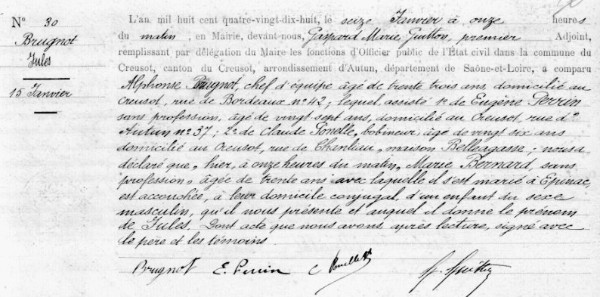 N° 30
Brugnot
Jules
15 Janvier
L'an mil huit cent quatre-vingt-dix-huit, le seize Janvier à onze heures
du matin, en Mairie, devant-nous, Gaspard Marie Guitton, premier Adjoint,
remplissant par délégation du Maire les fonctions d'Officier public de l'État civil dans la commune du
Creusot, canton du Creusot, arrondissement d'Autun, département de Saône-et-Loire, a comparu
Alphonse Brugnot, chef d'équipe âgé de trente trois ans, domicilié au
Creusot, rue de Bordeaux n° 42; lequel, assisté 1° de Eugène Perrin
sans profession, âgé de vingt sept ans, au Creusot, rue d'
Autun n° 37; 2° de Claude Ponelle, bobineur, âgé de vingt six ans
domicilié au Creusot, rue de Chanliau, maison Bellegasse; nous a
déclaré que, hier, à onze heures du matin, Marie Bernard, sans
profession, âgée de trente ans avec laquelle il s'est marié à Epinac,
est accouchée, à leur domicile conjugal, d'un enfant du sexe
masculin, qu'il nous présente et auquel il donne le prénom
de Jules. Dont acte que nous avons, après lecture, signé avec
le père et les témoins.
Brugnot E. Perrin C